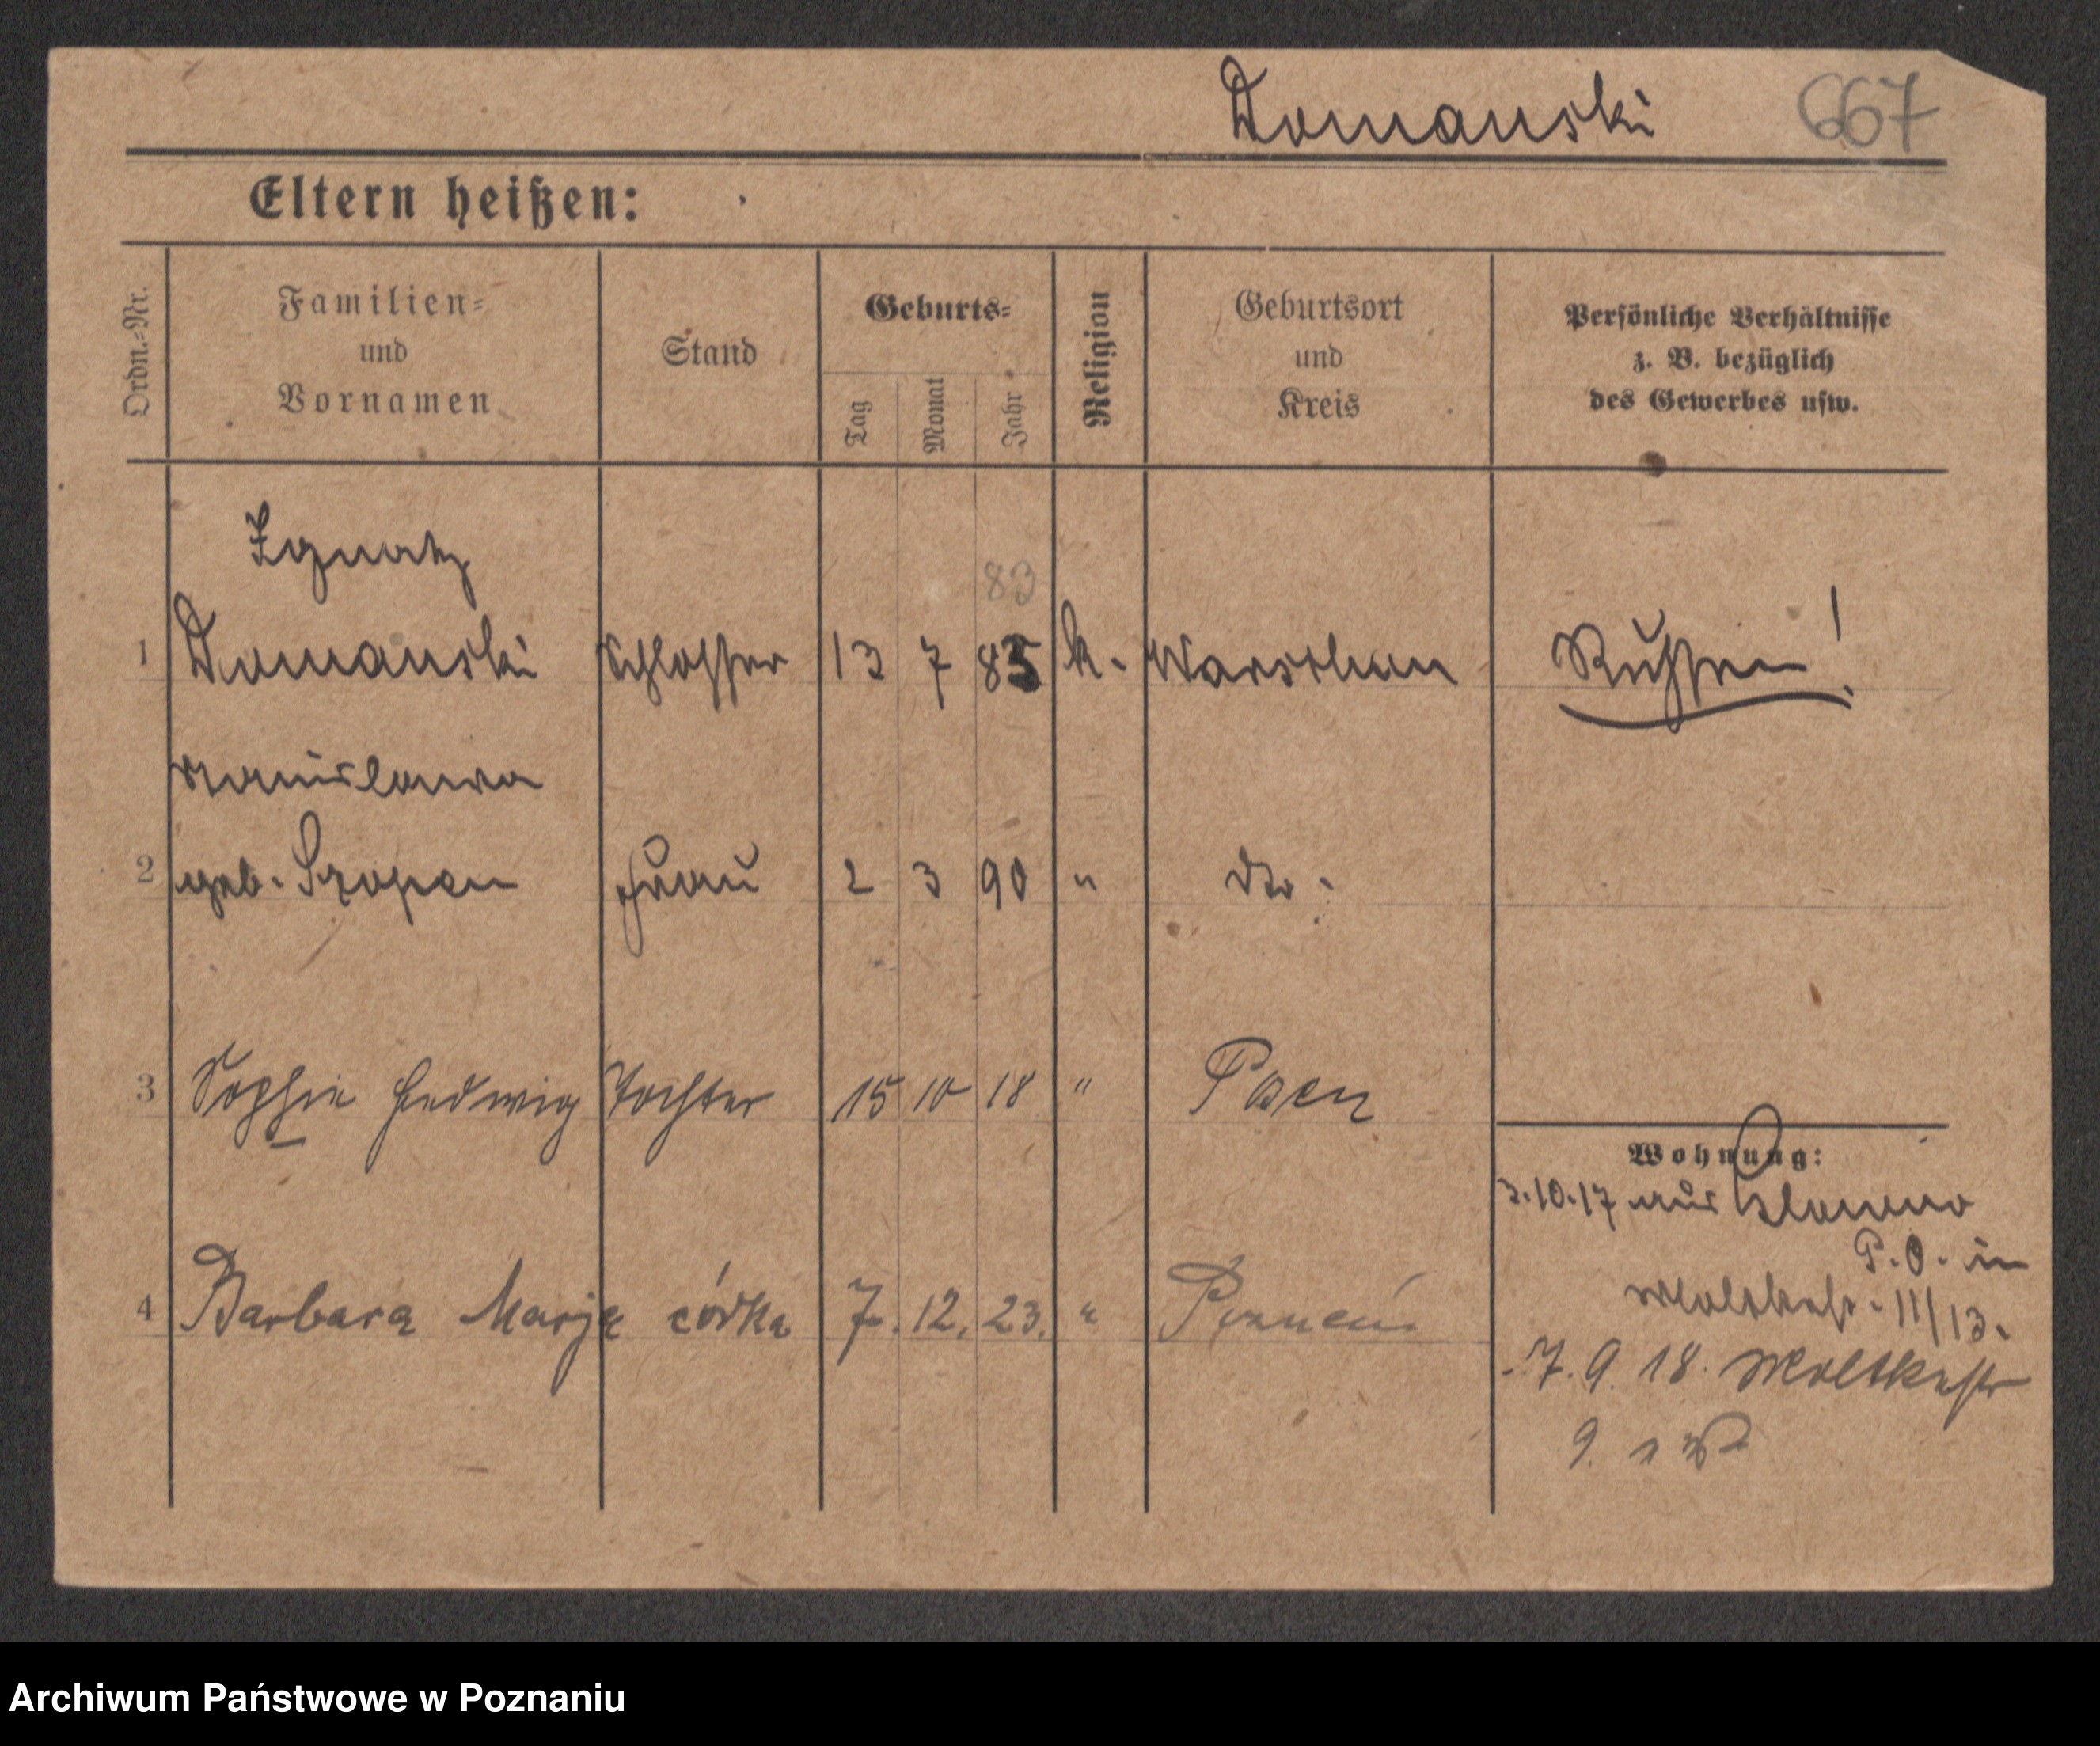 Domanski 667
Eltern heißen:
Ordn.-Nr.
Familien-
und
Vornamen
Stand
Geburts-
Tag
Monat
Jahr
Religion
Geburtsort
und
Kreis
Persönliche Verhältnisse
z. B. bezüglich
des Gewerbes usw.
Ignatz
83
1 Domanski Schlosser 13 7 85 k. Warschau Russen!
Stanislawa
2 geb. Szopan Frau 2 3 90 " dto.
3 Sophie Hedwig Tochter 15 10 18 " Posen
Wohnung:
3.10.17 aus
P.O. in
Moltkestr. 11/13.
4 Barbara Marja córka 7. 12. 23. " Poznań
7.9.18. Moltkestr
9.
Archiwum Państwowe w Poznaniu